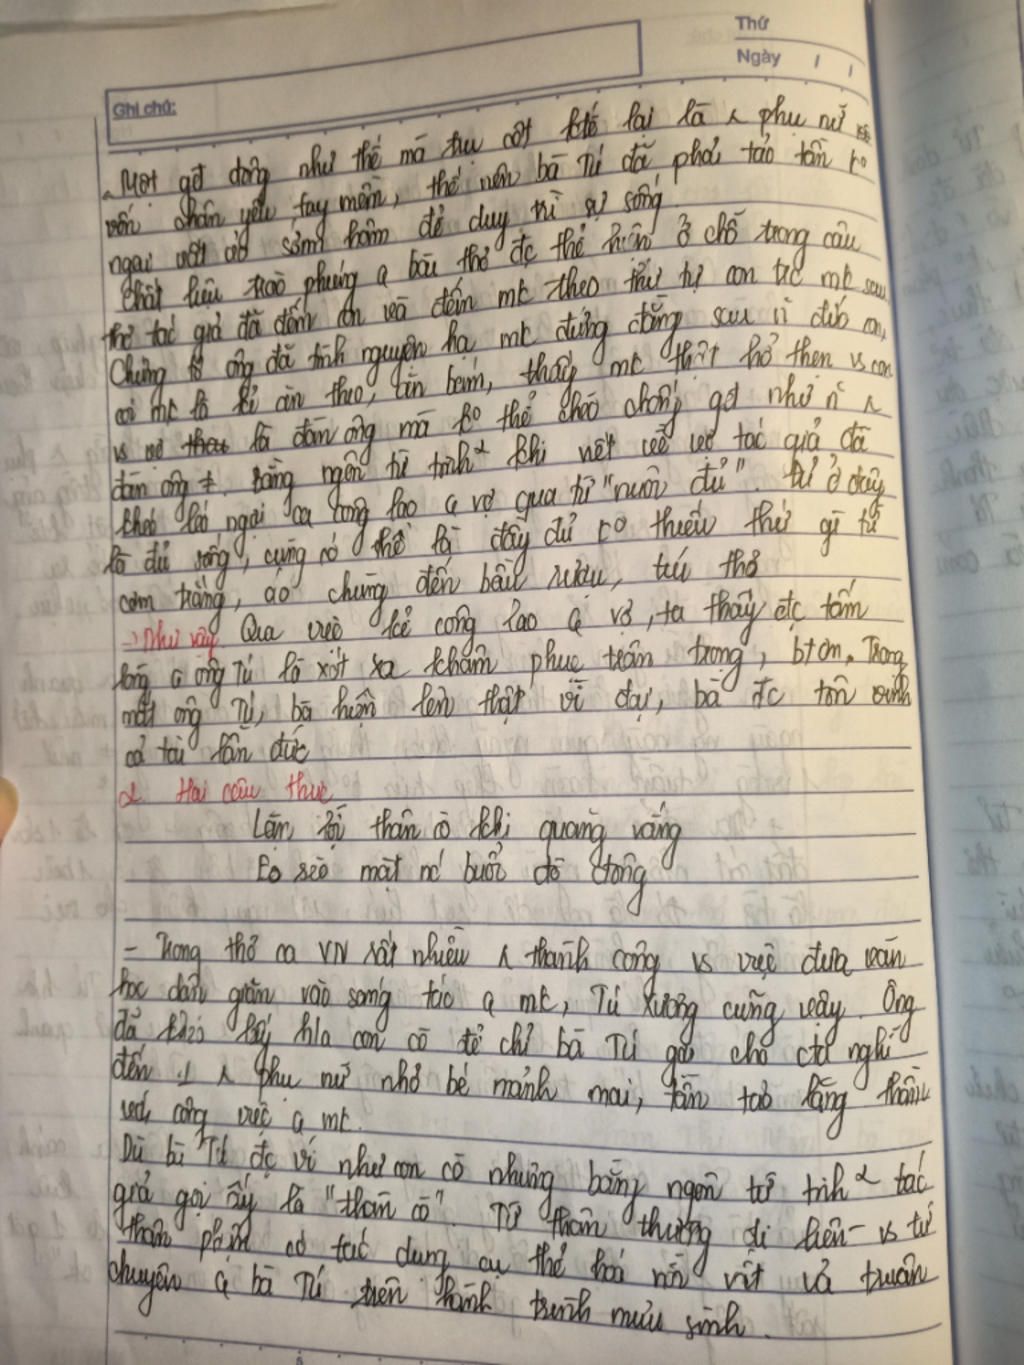 Thứ
Ngày / /
Ghi chú:
Một gđ đông như thế mà trụ cột ktế lại là ʌ phụ nữ
vốn chân yếu tay mềm, thế nên bà Tú đã phải tảo tần ko
ngại vất vả sớm hôm để duy trì sự sống.
Chất liệu trào phúng q bài thơ đc thể hiện ở chỗ trong câu
thơ tác giả đã đếm con và đếm mk theo thứ tự con trc mk sau
Chứng tỏ ông đã tình nguyện hạ mk đứng đằng sau vì đứa con,
coi mk là kẻ ăn theo, ăn bám, thấy mk thật hổ thẹn vs con
vs vợ là đàn ông mà ko thể chèo chống gđ như n ʌ
đàn ông ≠. Bằng ngôn từ tinh α khi viết về vợ tác giả đã
khéo léo ngợi ca công lao q vợ qua từ "nuôi đủ". Đủ ở đây
là đủ sống, cũng có thể là đầy đủ ko thiếu thứ gì từ
cơm trắng, áo chùng đến bầu rượu, túi thơ
→ Như vậy Qua việc kể công lao q vợ, ta thấy đc tấm
lòng q ông Tú là xót xa khâm phục trân trọng, btơn. Trong
mắt ông Tú, bà hiện lên thật vĩ đại, bà đc tôn vinh
cả tài lẫn đức
2. Hai câu thực
Lặn lội thân cò khi quãng vắng
Eo sèo mặt nc buổi đò đông
- Trong thơ ca VN rất nhiều ʌ thành công vs việc đưa văn
học dân gian vào sáng tác q mk, Tú Xương cũng vậy. Ông
đã khéo lấy h/a con cò để chỉ bà Tú gợi cho ctđ nghĩ
đến 1 ʌ phụ nữ nhỏ bé mảnh mai, tần tảo lặng thầm
với công việc q mk.
Dù bà Tú đc ví như con cò nhưng bằng ngôn từ tinh α tác
giả gọi ấy là "thân cò". Từ thân thường đi liền vs từ
thân phận có tác dụng cụ thể hoá nỗi vất vả truân
chuyên q bà Tú trên hành trình mưu sinh.